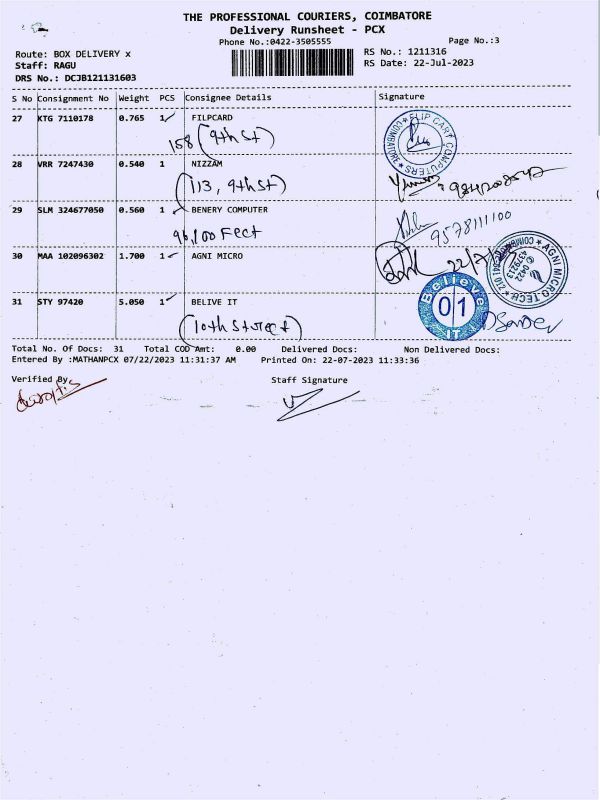 THE PROFESSIONAL COURIERS, COIMBATORE
Delivery Runsheet - PCX
Phone No.:0422-3505555
Page No.:3
Route: BOX DELIVERY x
RS No.: 1211316
Staff: RAGU
RS Date: 22-Jul-2023
DRS No.: DCJB121131603
S No Consignment No Weight PCS Consignee Details Signature
27 KTG 7110178 0.765 1 FILPCARD
158 (9th St)
FLIP CART COMPUTERS COIMBATORE
28 VRR 7247430 0.540 1 NIZZAM
(113, 9th St)
29 SLM 324677050 0.560 1 BENERY COMPUTER
96,100 Feet
9578111100
30 MAA 102096302 1.700 1 AGNI MICRO
22/7/23
AGNI MICRO TECH
31 STY 97420 5.050 1 BELIVE IT
(10th Street)
Believe
01
IT
Total No. Of Docs: 31 Total COD Amt: 0.00 Delivered Docs: Non Delivered Docs:
Entered By :MATHANPCX 07/22/2023 11:31:37 AM Printed On: 22-07-2023 11:33:36
Verified By
Staff Signature